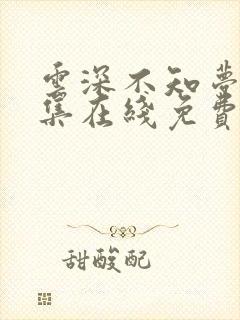 雲深不知夢
集在綫免費
甜酸配